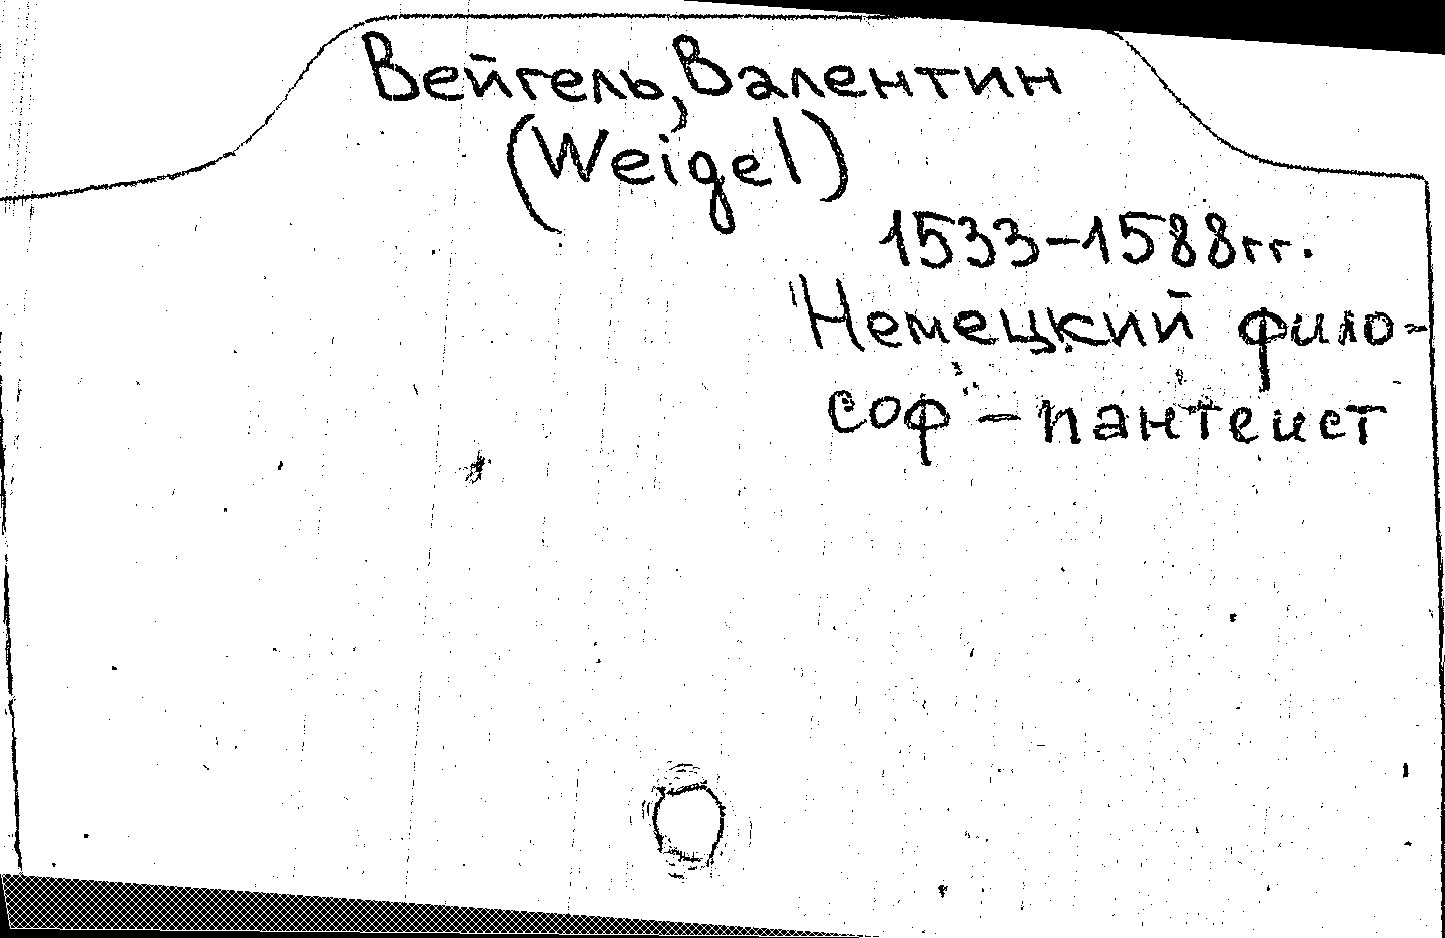 Вейгель, Валентин
(Weigel)
1533-1588гг.
Немецкий фило-
соф - пантеист